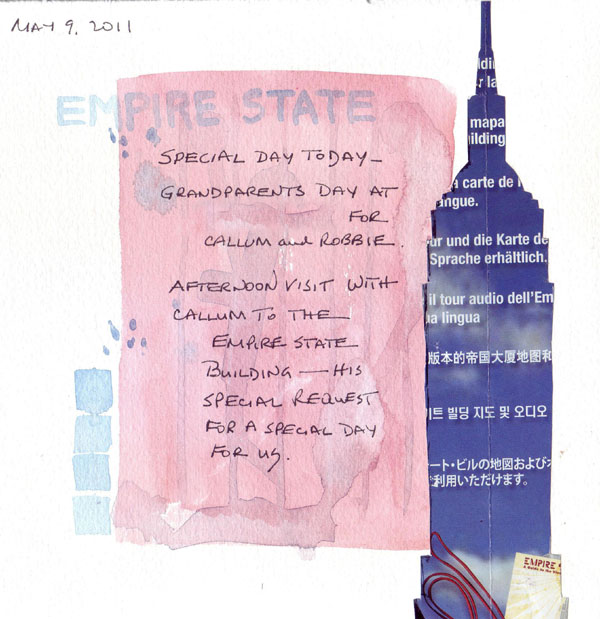 MAY 9, 2011
EMPIRE STATE
SPECIAL DAY TODAY –
GRANDPARENTS DAY AT
FOR
CALLUM and ROBBIE.
AFTERNOON VISIT WITH
CALLUM TO THE
EMPIRE STATE
BUILDING — HIS
SPECIAL REQUEST
FOR A SPECIAL DAY
FOR US.
ldi
r la
mapa
uilding
a carte de l
angue.
ur und die Karte de
Sprache erhältlich.
il tour audio dell'Em
ua lingua
版本的帝国大厦地图和
이트 빌딩 지도 및 오디오
ート・ビルの地図およびオ
ご利用いただけます。
EMPIRE S